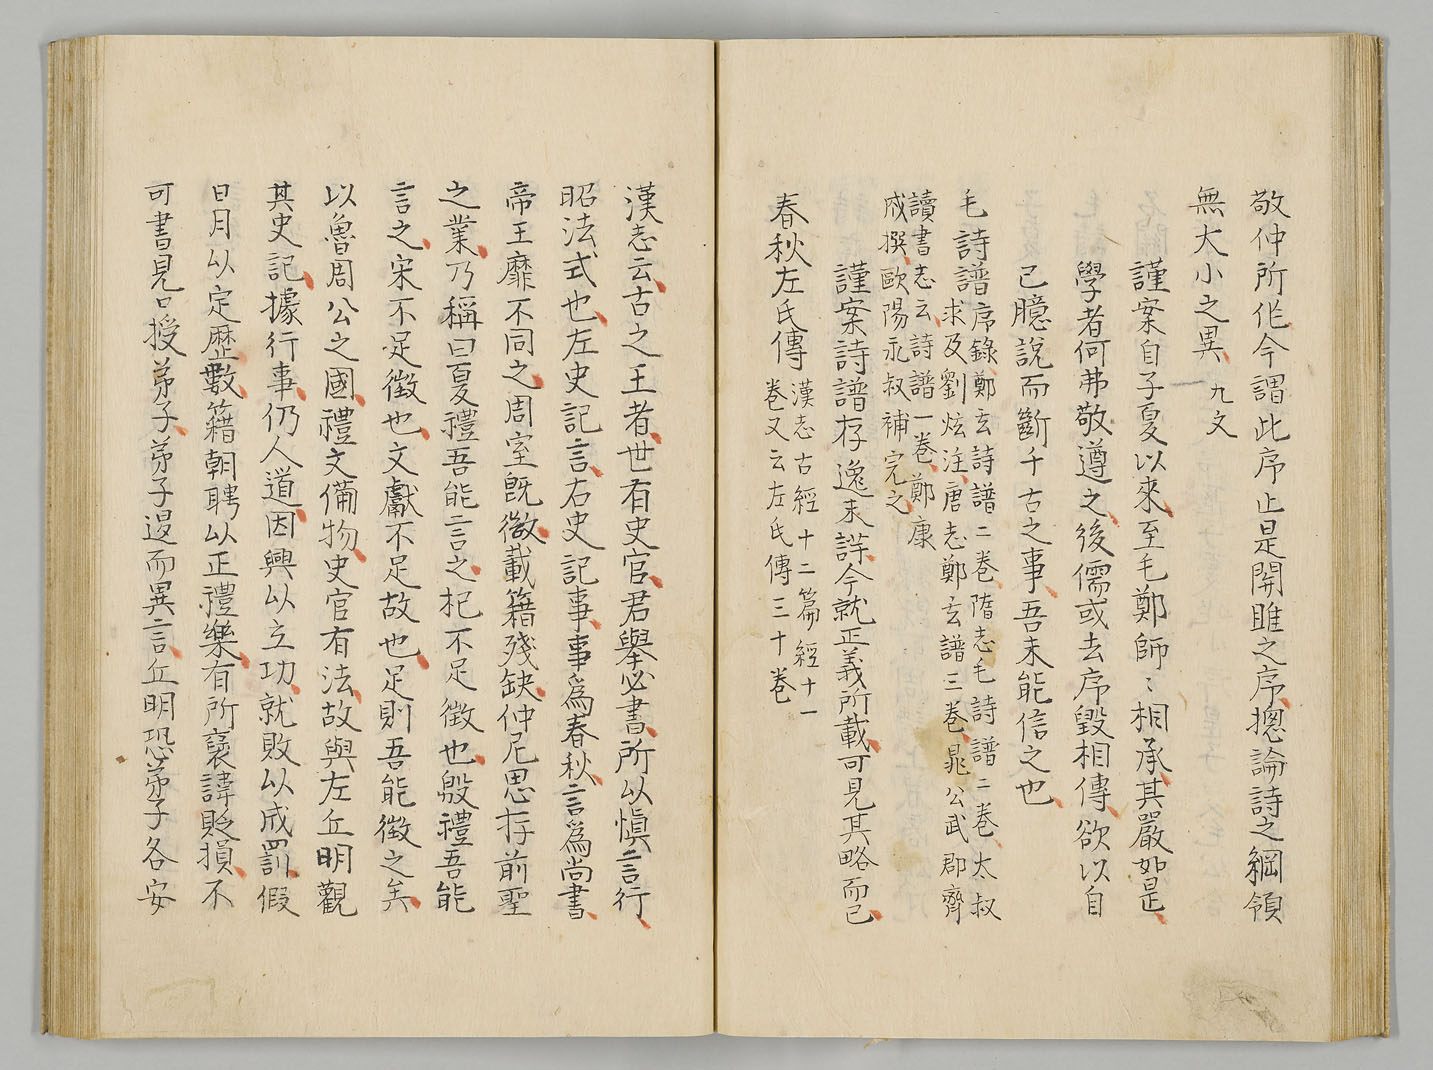 敬仲所作今謂此序止是關雎之序揔論詩之綱領
無大小之異 九文
謹案自子夏以來至毛鄭師〻相承其嚴如是
學者何弗敬遵之後儒或去序毀相傳欲以自
己臆說而斷千古之事吾未能信之也
毛詩譜
序錄鄭玄詩譜二巻隋志毛詩譜二巻太叔
求及劉炫注唐志鄭玄譜三巻晁公武郡齊
讀書志云詩譜一巻鄭康
成撰歐陽永叔補完之
謹案詩譜存逸未詳今就正義所載可見其略而已
春秋左氏傳
漢志古經十二篇經十一
巻又云左氏傳三十巻
漢志云古之王者世有史官君舉必書所以愼言行
昭法式也左史記言右史記事事爲春秋言爲尚書
帝王靡不同之周室旣微載籍殘缺仲尼思存前聖
之業乃稱曰夏禮吾能言之杞不足徴也殷禮吾能
言之宋不足徴也文獻不足故也足則吾能徴之矣
以魯周公之國禮文備物史官有法故與左丘明觀
其史記據行事仍人道因興以立功就敗以成罰假
日月以定歴數籍朝聘以正禮樂有所褒諱貶損不
可書見口授弟子弟子退而異言丘明恐弟子各安